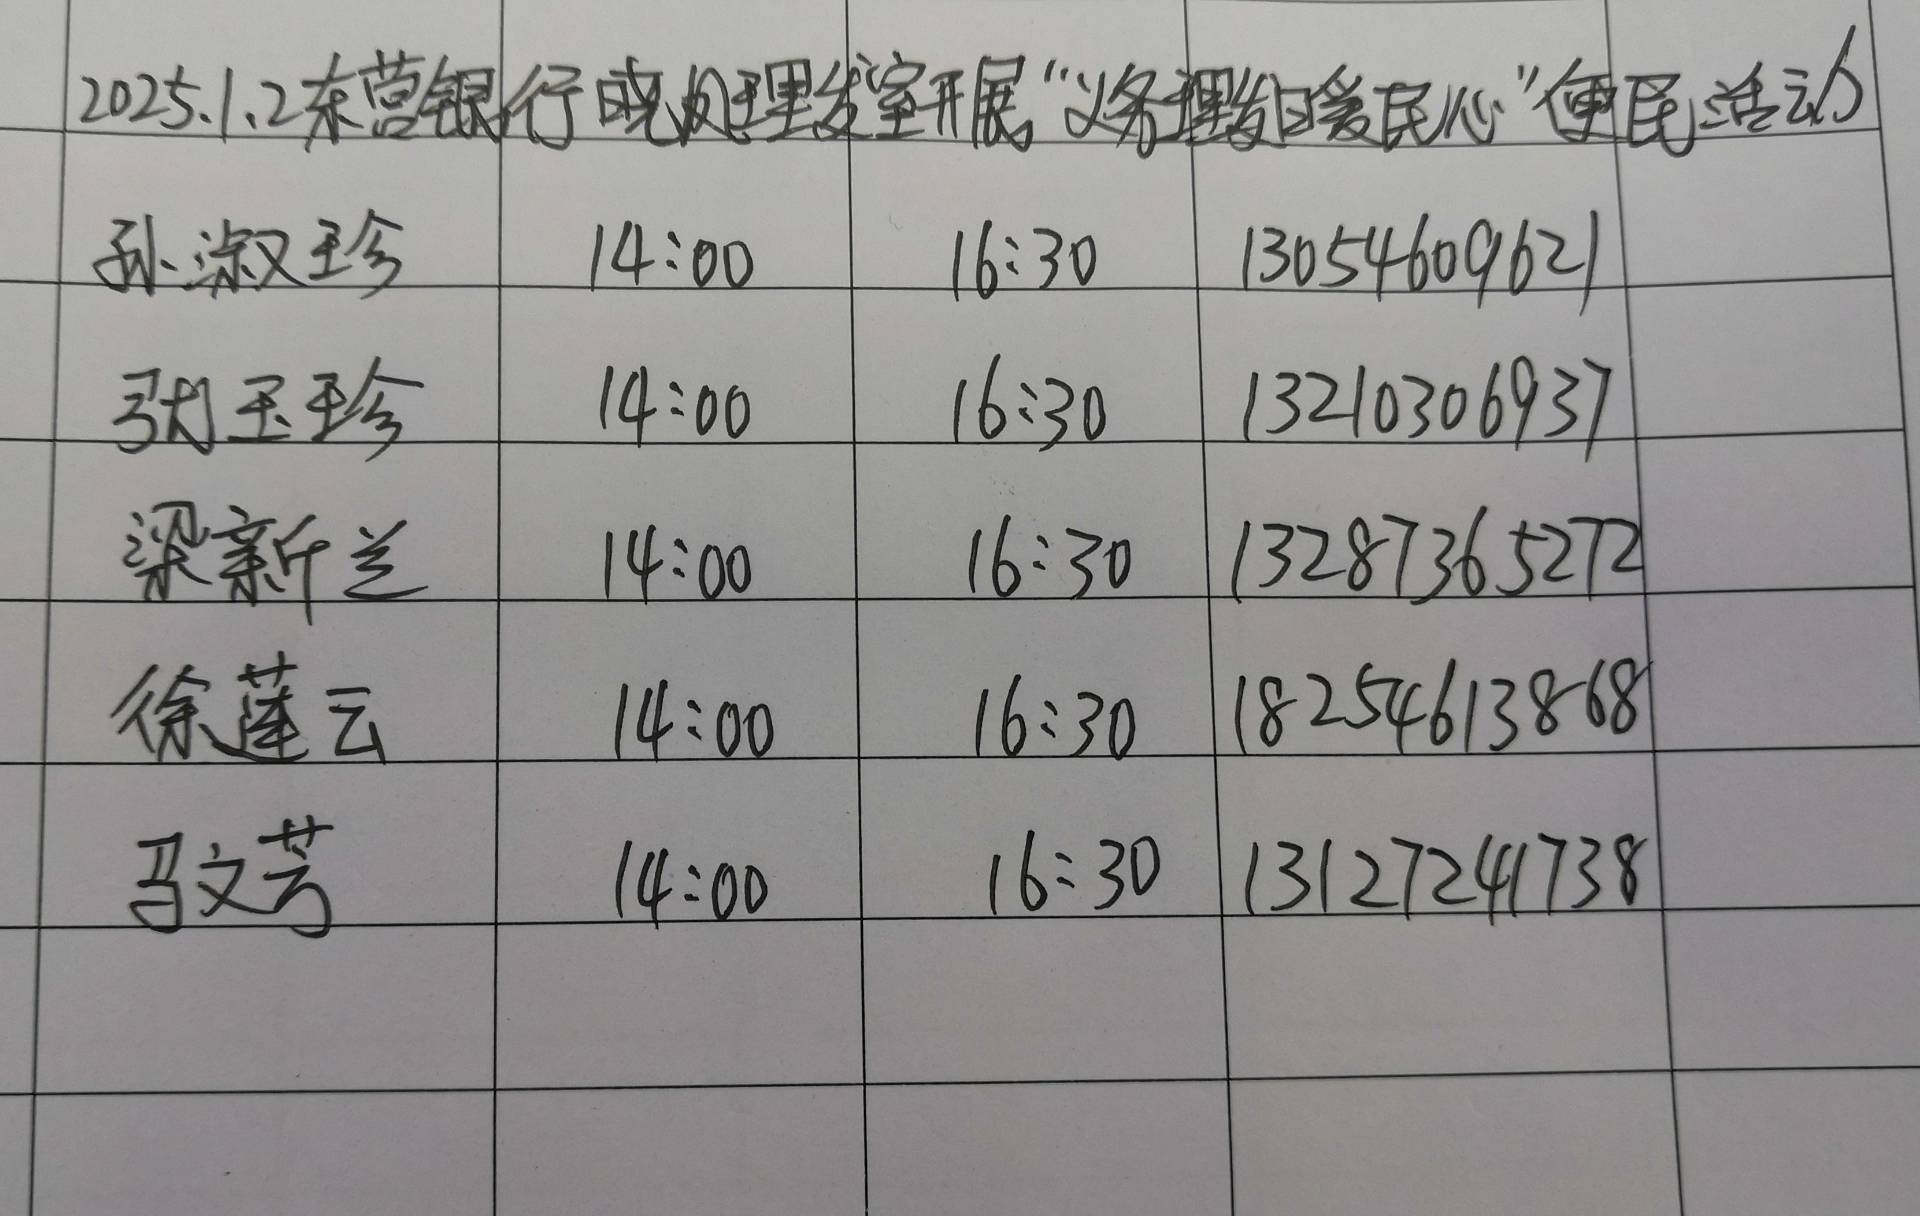 2025.1.2东营银行晓风理发室开展“义务理发日暖民心”便民活动
孙淑珍 14:00 16:30 13054609621
张玉珍 14:00 16:30 13210306937
梁新兰 14:00 16:30 13287365272
徐莲云 14:00 16:30 18254613868
马文芳 14:00 16:30 13127241738